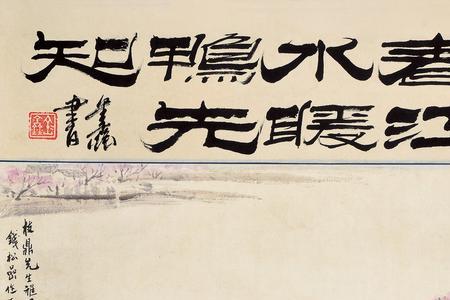 春江
水暖
鴨先
知
書
鼎先生雅
錢松嵒作